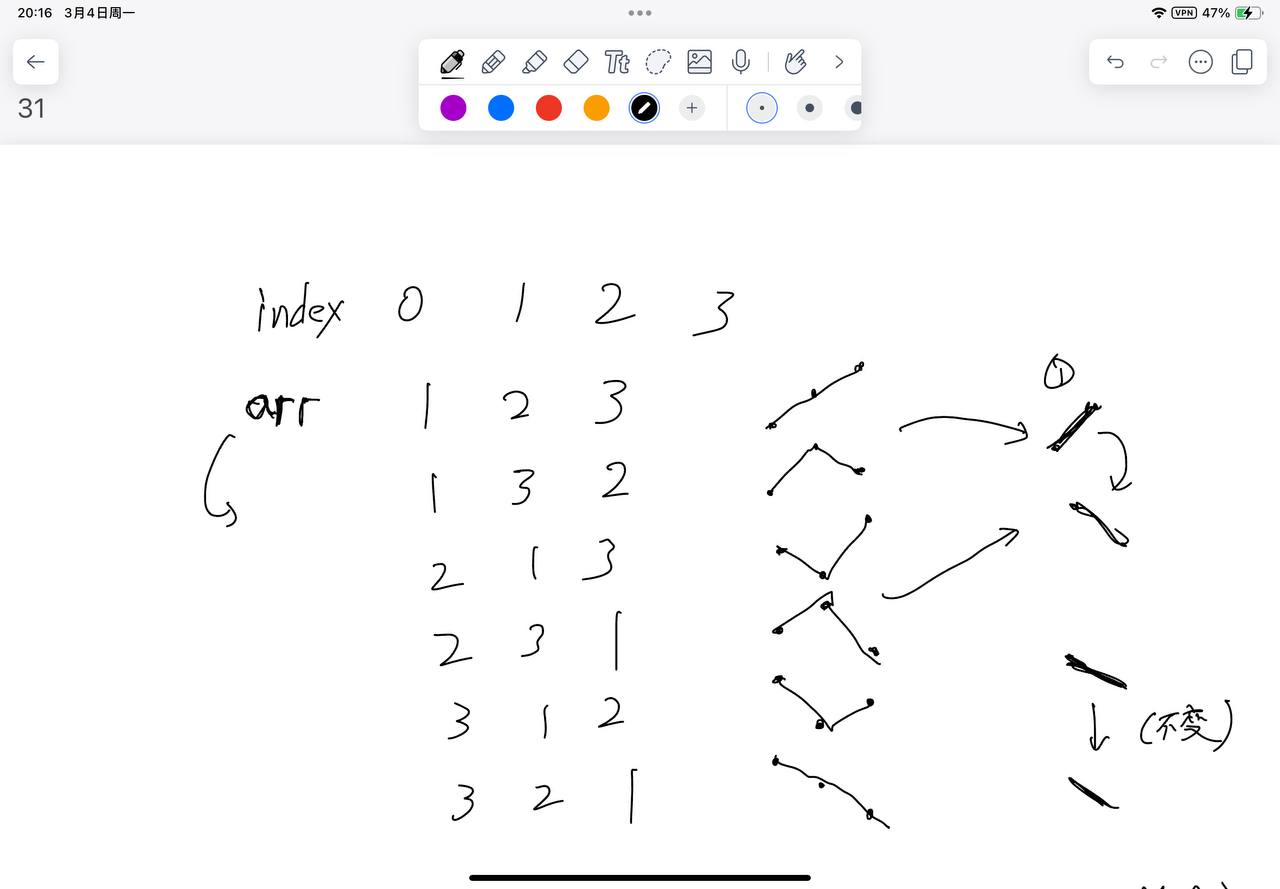 20:16 3月4日周一
VPN 47%
Tt
31
index 0 1 2 3
arr 1 2 3
①
1 3 2
2 1 3
2 3 1
3 1 2
(不变)
3 2 1